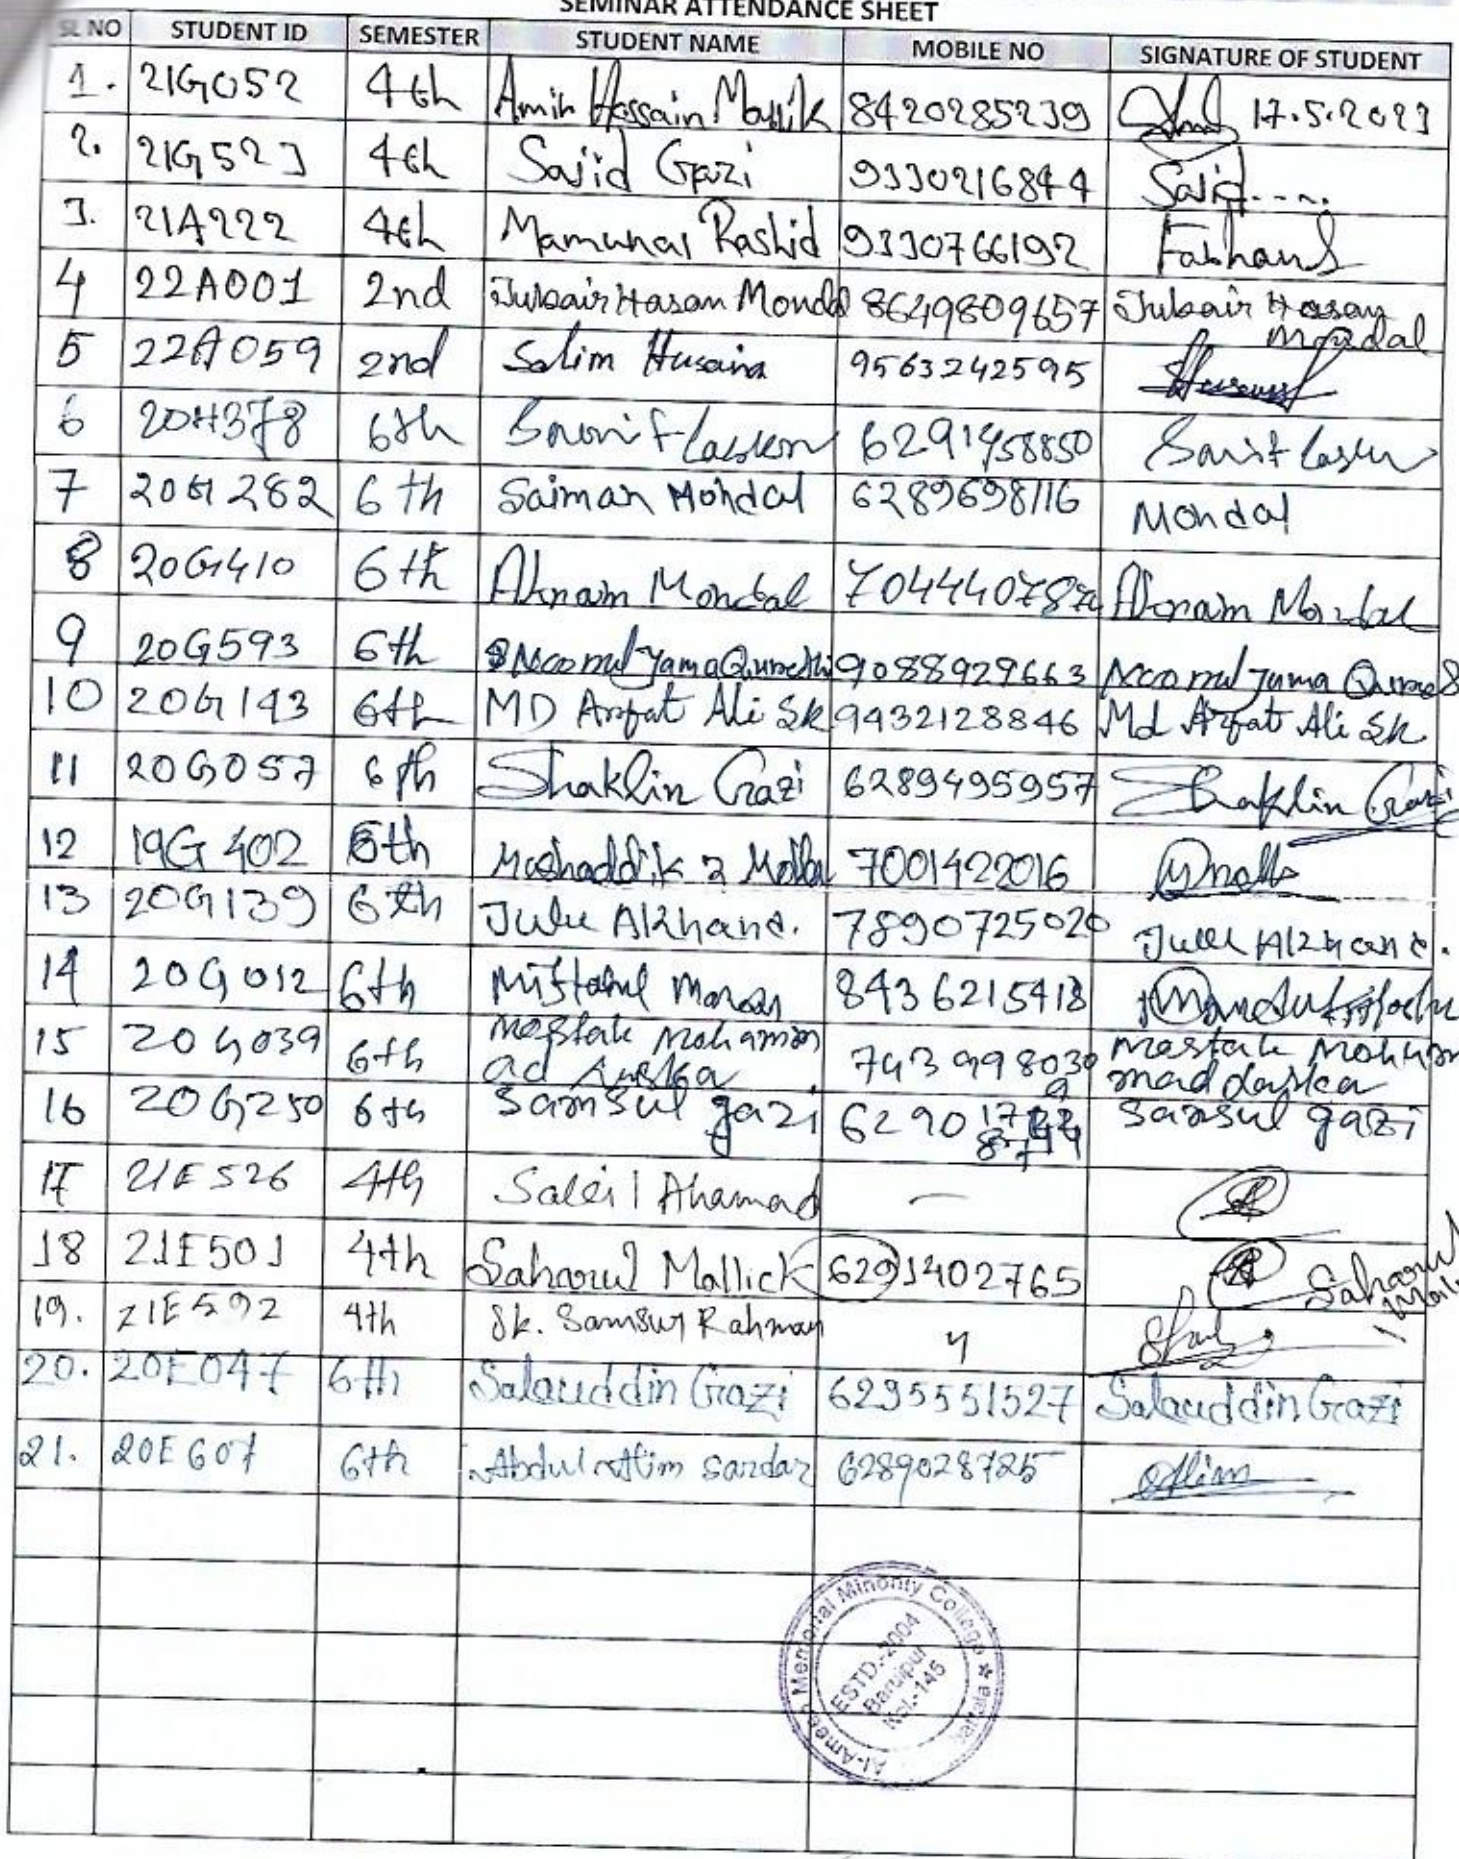 SEMINAR ATTENDANCE SHEET
SL NO STUDENT ID SEMESTER STUDENT NAME MOBILE NO SIGNATURE OF STUDENT
1. 21G052 4th Amin Hossain Mallik 8420285239 17.5.2023
2. 21G523 4th Sajid Gazi 9330216844 Sajid....
3. 21A222 4th Mamunar Rashid 9330766192 Farhans
4 22A001 2nd Jubair Hasan Mondal 8649809657 Jubair Hasan
Mondal
5 22A059 2nd Salim Husain 9563242595
6 20H378 6th 6291458850
7 20G282 6th Saiman Mondal 6289698116 Mondal
8 20G410 6th Aknam Mondal Aknam Mondal
9 20G593 6th 9088929663
10 20G143 6th MD Arfat Ali Sk 9432128846 Md Arfat Ali Sk
11 20G057 6th Shaklin Gazi 6289495957 Shaklin Gazi
12 19G402 6th Moshaddik 7001422016
13 20G139 6th Julu Akhand. 7890725020 Akhand.
14 20G012 6th 8436215418
15 20G039 6th Mostak Mohamm 743998030 Mostak Moham
9
16 20G250 6th Samsul gazi 6290 Samsul gazi
17 21E526 4th Ahamad —
18 21E501 4th Saharul Mallick 6291402765 Saharul
19. 21E592 4th Sk. Samsur Rahman
20. 20E047 6th Salauddin Gazi 6295551527 Salauddin Gazi
21. 20E607 6th Abdul Alim Sardar 6289028725 Alim
Al-Ameen Memorial Minority College
ESTD.-2004
Baruipur
Kol.-145